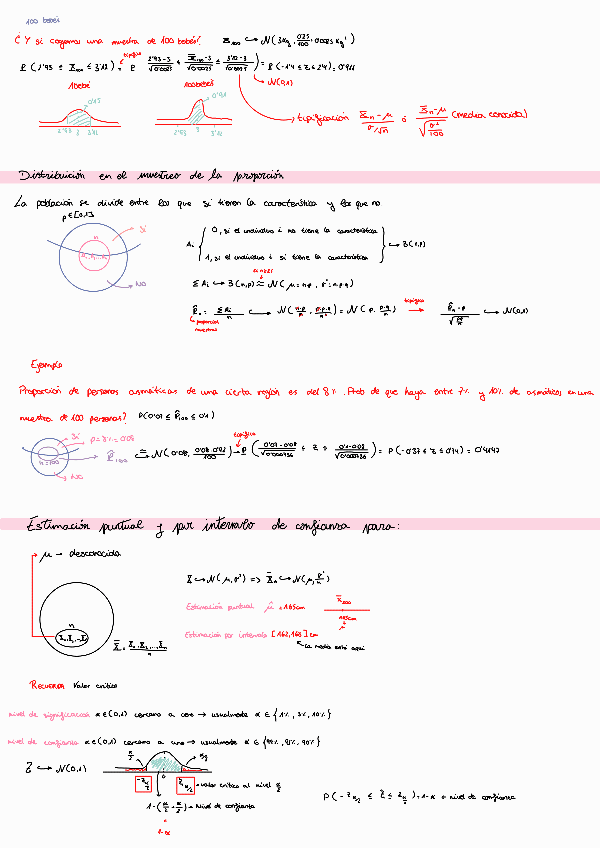 100 bebés
¿Y si cogemos una muestra de 100 bebés? X̄₁₀₀ ↪ N(3kg, 0'25/100 = 0'0025 kg²)
tipifico
P(2'93 ≤ X̄₁₀₀ ≤ 3'12) = P(2'93-3/√0'0025 ≤ X̄₁₀₀-3/√0'0025 ≤ 3'12-3/√0'0025) = P(-1'4 ≤ Z ≤ 2'4) = 0'911
N(0,1)
1 bebé 100 bebés
0'15 0'91
2'93 3 3'12 2'93 3 3'12
tipificación X̄n-μ/σ/√n ó X̄n-μ/√σ²/100 (media conocida)
Distribución en el muestreo de la proporción
La población se divide entre los que sí tienen la característica y los que no
p ∈ [0,1]
Sí
n
NO
Ai { 0, si el individuo i no tiene la característica
1, si el individuo i si tiene la característica → B(1,p)
ΣAi ↪ B(n,p) ≈ N(μ=n·p, σ²=n·p·q)
P̂n = ΣAi/n ↪ N(n·p/n, n·p·q/n²) = N(p, p·q/n) tipifico → P̂n-p/√pq/n ↪ N(0,1)
proporción muestral
Ejemplo
Proporción de personas asmáticas de una cierta región es del 8%. Prob de que haya entre 7% y 10% de asmáticos en una
muestra de 100 personas? P(0'07 ≤ P̂₁₀₀ ≤ 0'1)
Sí p=8%=0'08
n=100 P̂₁₀₀
NO
tipifico
≈ N(0'08, 0'08·0'92/100) → P(0'07-0'08/√0'000736 ≤ Z ≤ 0'1-0'08/√0'000736) = P(-0'37 ≤ Z ≤ 0'74) = 0'4147
Estimación puntual y por intervalo de confianza para:
μ → desconocida
n
X₁, X₂, ..., Xn
X̄ = X₁, X₂, ..., Xn/n
X ↪ N(μ, σ²) => X̄n ↪ N(μ, σ²/n)
Estimación puntual μ̂ = 165cm
X̄₁₀₀
165cm
μ̂
Estimación por intervalo [162,168] cm
La media está aquí
RECUERDA Valor crítico
nivel de significación α ∈ (0,1) cercano a cero → usualmente α ∈ {1%, 5%, 10%}
nivel de confianza α ∈ (0,1) cercano a uno → usualmente α ∈ {99%, 95%, 90%}
Z ↪ N(0,1)
α/2 α/2
-Zα/2 0 Zα/2 = valor crítico al nivel α/2
1-(α/2+α/2) = Nivel de confianza
1-α
P(-Zα/2 ≤ Z ≤ Zα/2) = 1-α = nivel de confianza